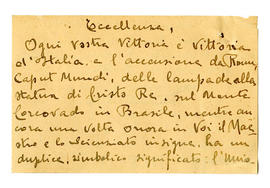 Eccellenza,
Ogni Vostra Vittoria è Vittoria
d'Italia, e l'accensione da Roma,
Caput Mundi, della lampada alla
statua di Cristo Re, sul Monte
Corcovado in Brasile, mentre an
cora una volta onora in Voi il Mae
stro e lo Scienziato insigne, ha un
duplice, simbolico significato: l'Unio